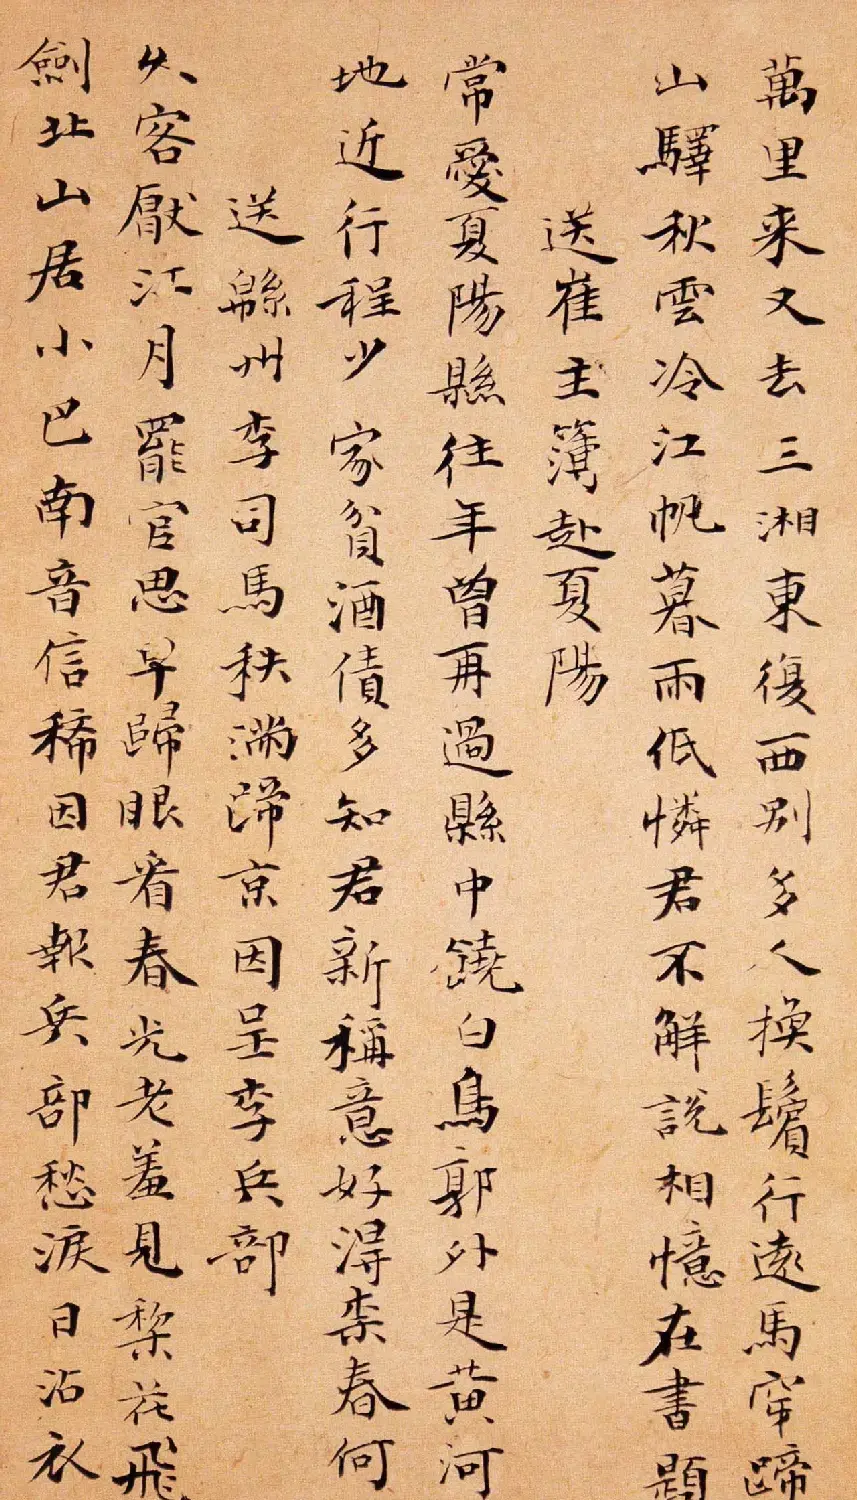 萬里来又去三湘東復西別多人換鬢行遠馬穿蹄
山驛秋雲冷江帆暮雨低憐君不解說相憶在書題
送崔主簿赴夏陽
常愛夏陽縣往年曾再過縣中饒白鳥郭外是黃河
地近行程少家貧酒債多知君新稱意好得柰春何
送緜州李司馬秩滿歸京因呈李兵部
久客厭江月罷官思早歸眼看春光老羞見梨花飛
劍北山居小巴南音信稀因君報兵部愁淚日沾衣